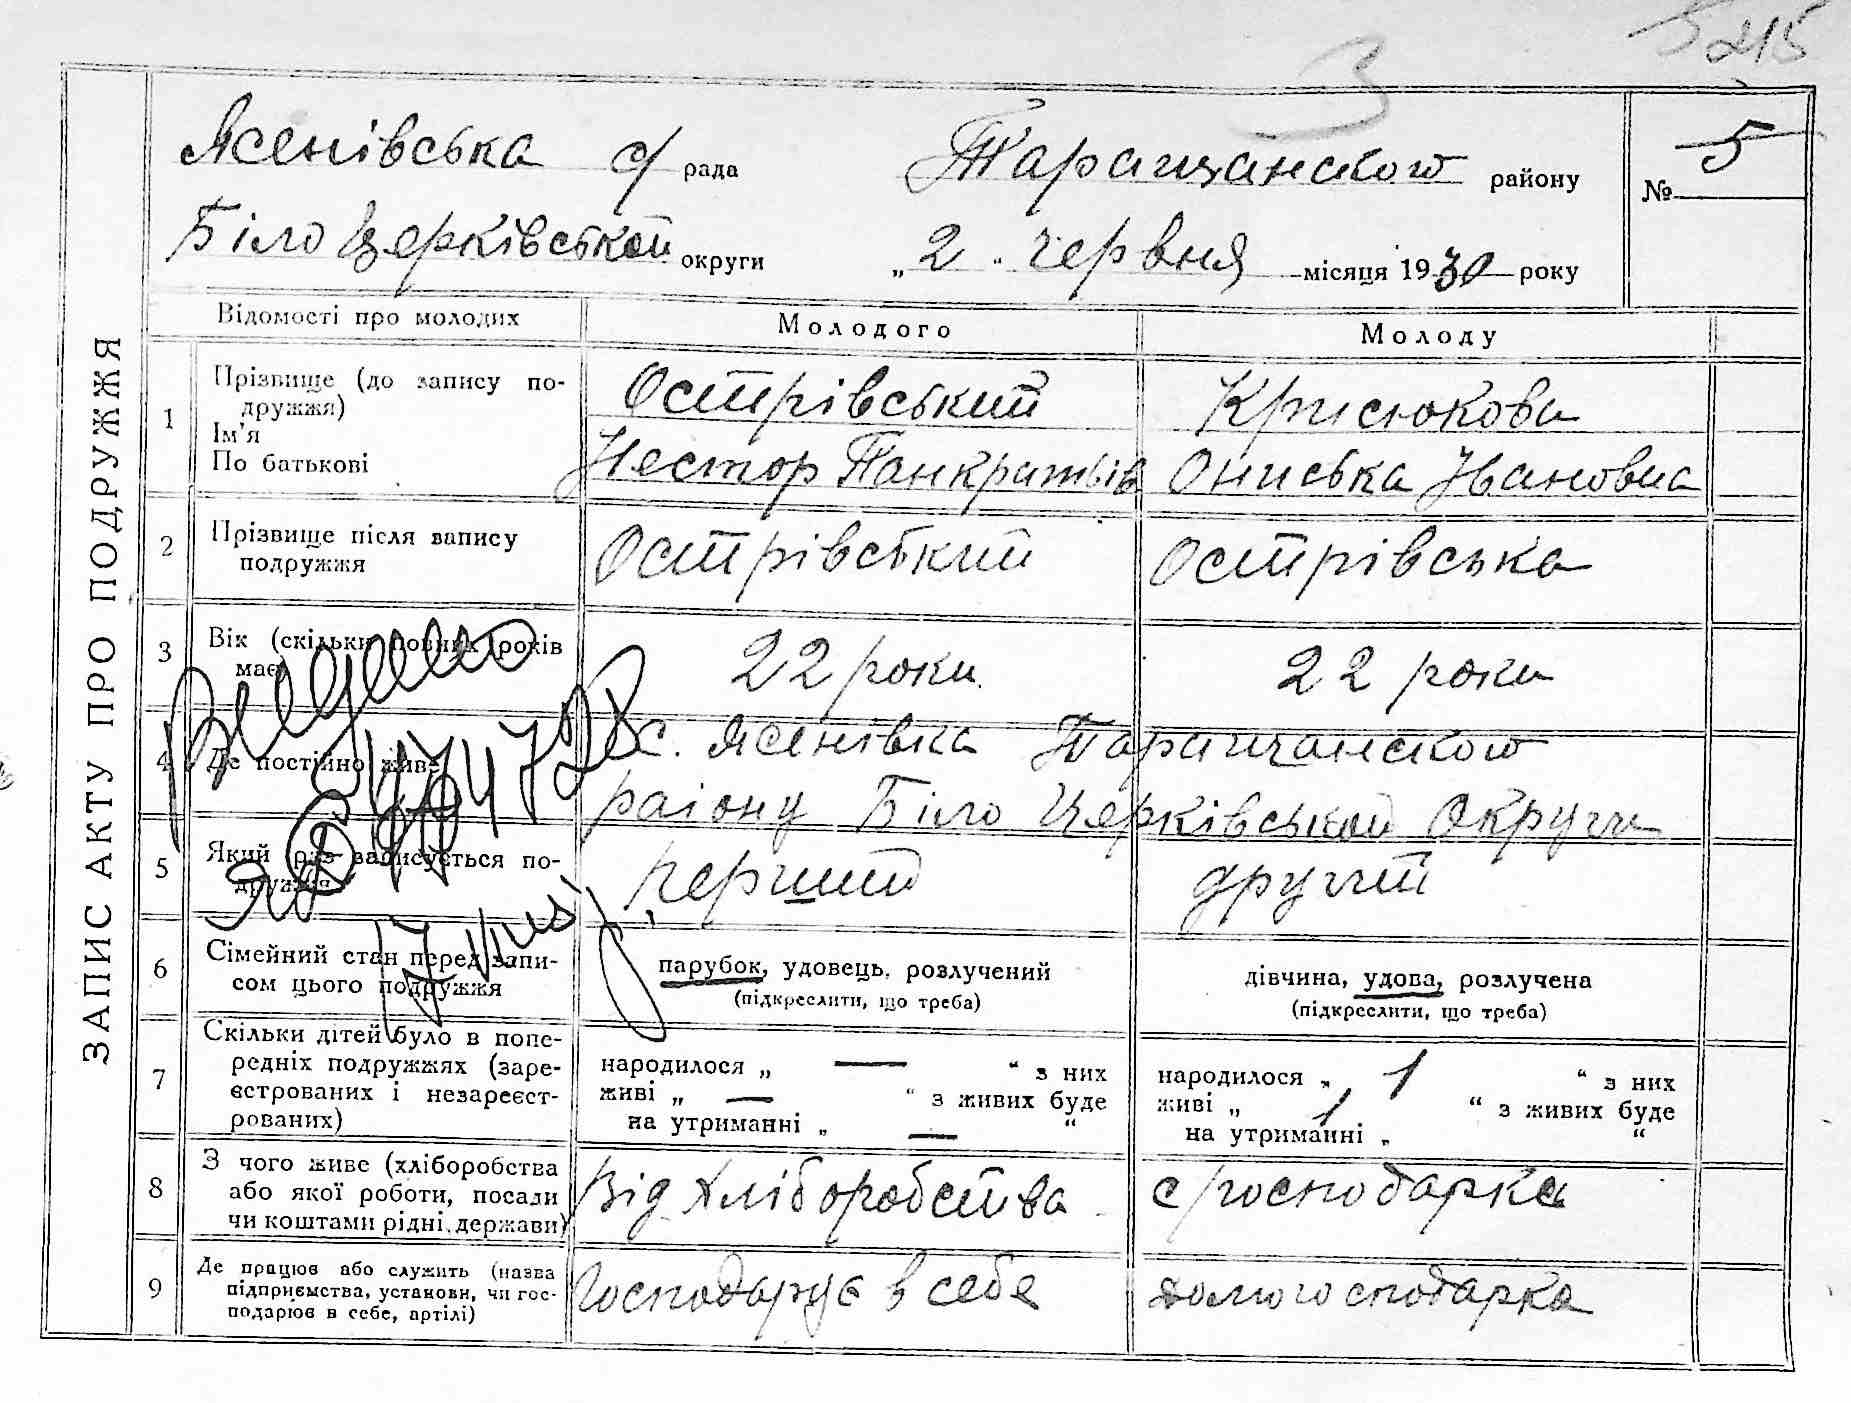 5
215
3
Ясенівська с/ рада Таращанского району № 5
Біло Церківськой округи „ 2 “ червня місяця 1930 року
ЗАПИС АКТУ ПРО ПОДРУЖЖЯ
Відомості про молодих Молодого Молоду
1 Прізвище (до запису по-
дружжя)
Ім'я
По батькові
Острівський
Нестор Панкратьів
Крисюкова
Ониська Івановна
2 Прізвище після запису
подружжя
Острівський
Острівська
3 Вік (скільки повних років
має)
22 роки
22 роки
4 Де постійно живе
с. Ясенівка Таращанского
раіону Біло Церківськой Округи
5 Який раз записується по-
дружжя
перший
другий
6 Сімейний стан перед запи-
сом цього подружжя
парубок, удовець, розлучений
(підкреслити, що треба)
дівчина, удова, розлучена
(підкреслити, що треба)
7 Скільки дітей було в попе-
редніх подружжях (заре-
єстрованих і незареєст-
рованих)
народилося „ — “ з них
живі „ — “ з живих буде
на утриманні „ — “
народилося „ 1 “ з них
живі „ 1 “ з живих буде
на утриманні „ “
8 З чого живе (хліборобства
або якої роботи, посади
чи коштами рідні, держави)
Від хліборобства
с господарки
9 Де працює або служить (назва
підприємства, установи, чи гос-
подарює в себе, артілі)
Господарує в себе
домогосподарка